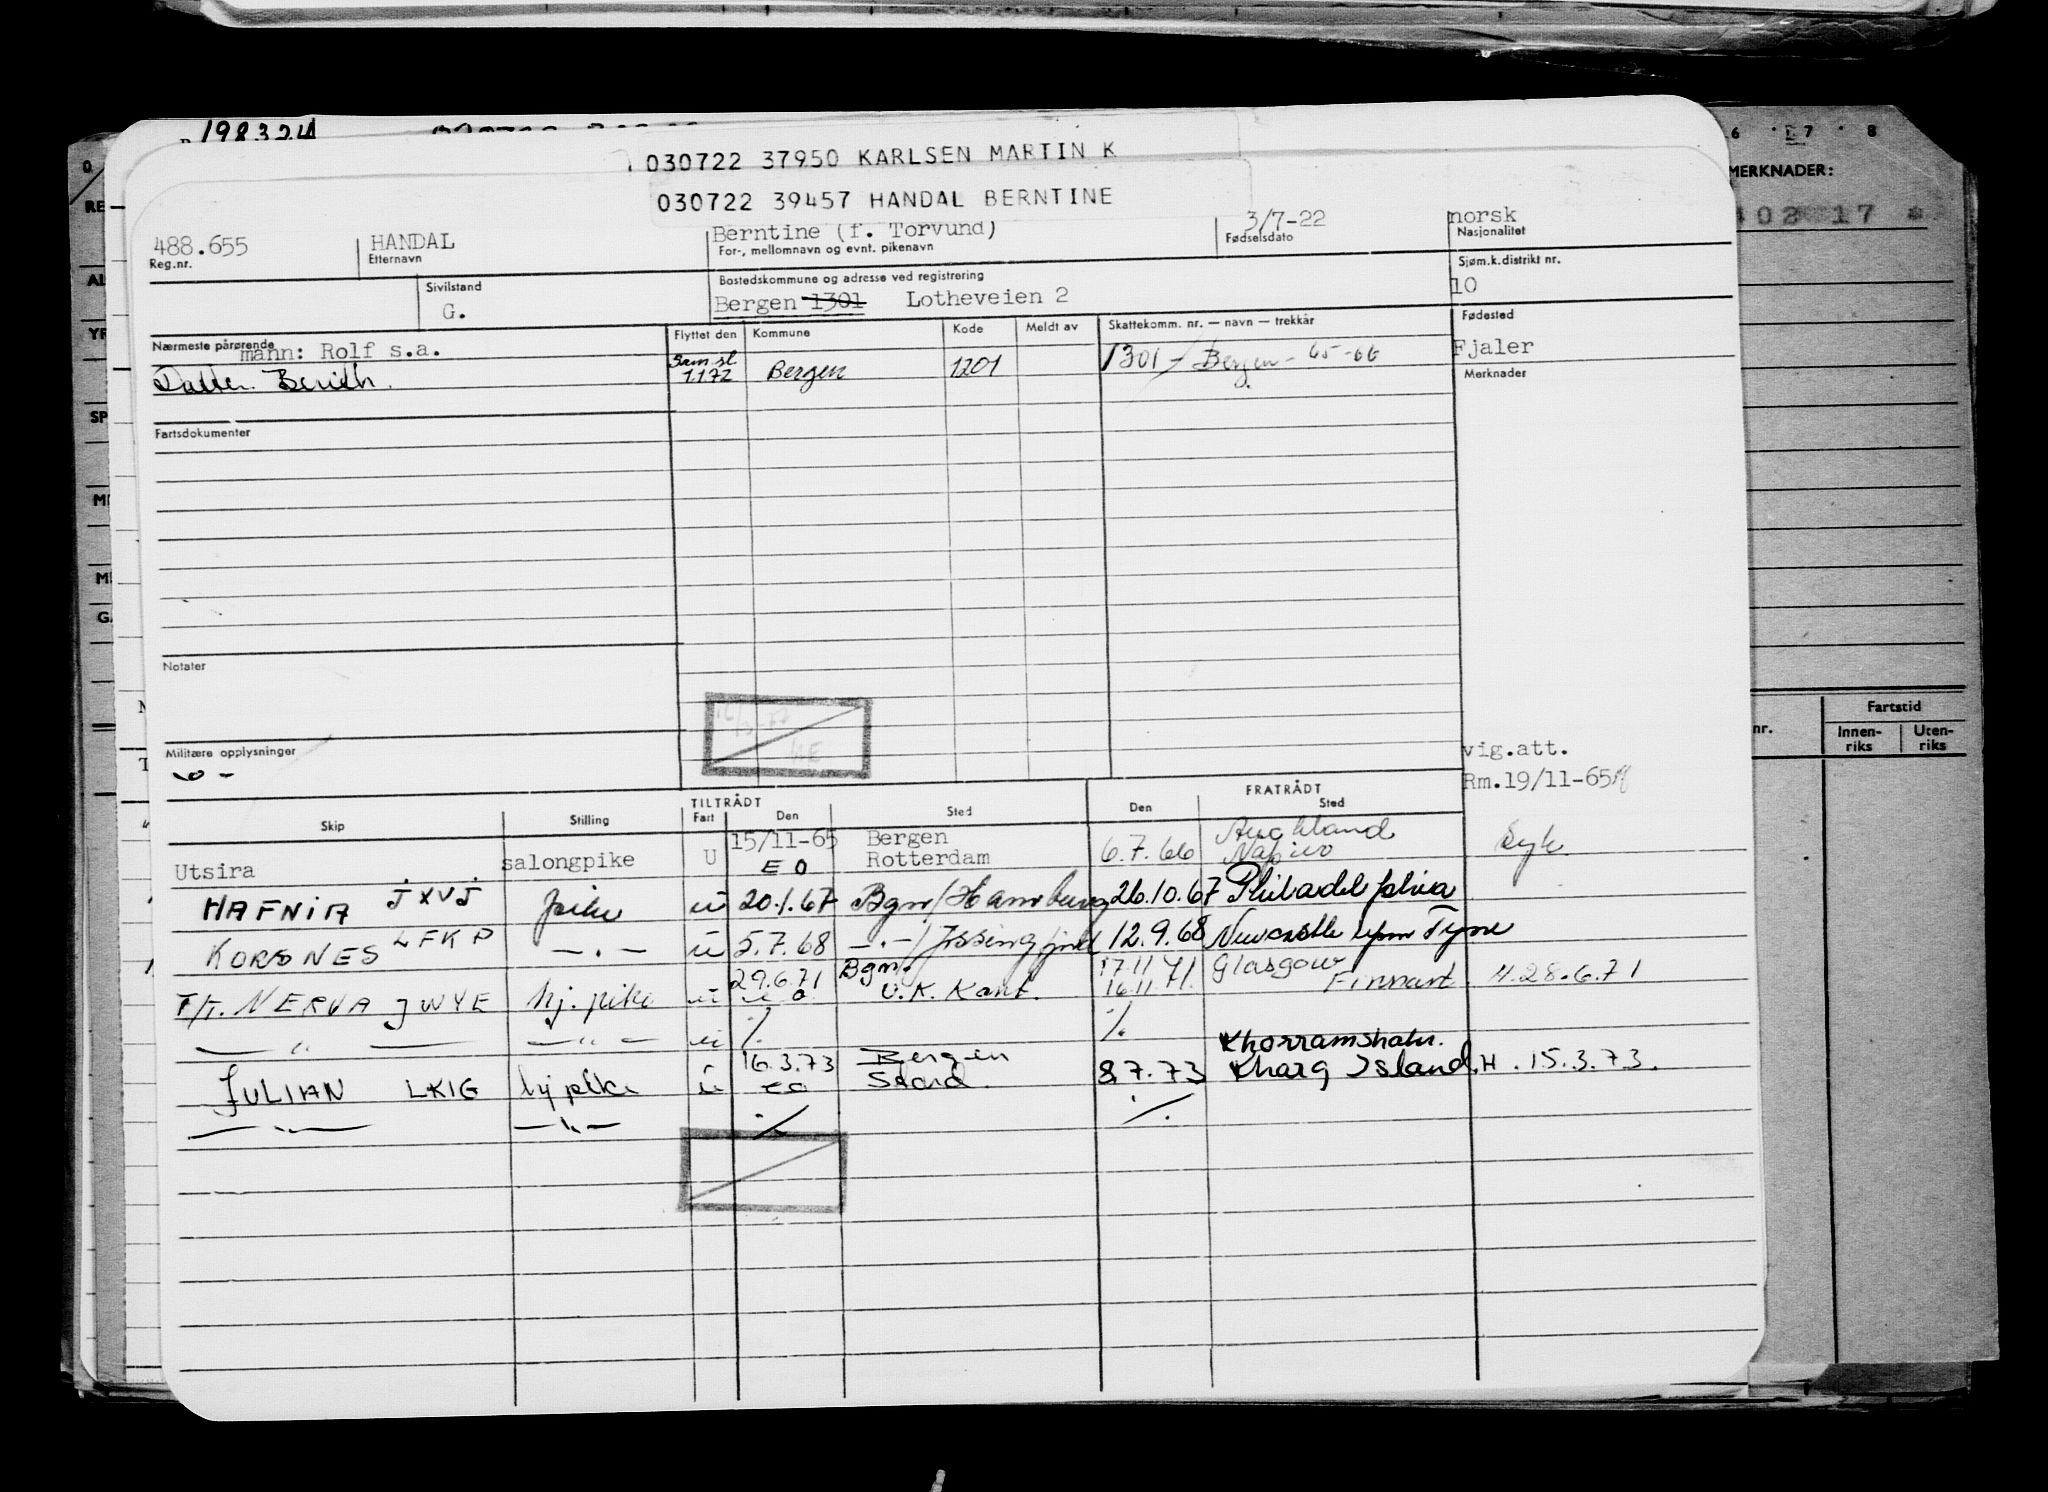 198324
030722 37950 KARLSEN MARTIN K
030722 39457 HANDAL BERNTINE
488.655 HANDAL Berntine (f. Torvund) 3/7-22 norsk
Reg.nr. Etternavn For-, mellomnavn og evnt. pikenavn Fødselsdato Nasjonalitet
Sivilstand Bostedskommune og adresse ved registrering Sjøm.k.distrikt nr.
G. Bergen 1301 Lotheveien 2 10
Nærmeste pårørende Flyttet den Kommune Kode Meldt av Skattekomm. nr. — navn — trekkår Fødested
mann: Rolf s.a. Sam.sl. Fjaler
Datter. Berith. 1.1.72 Bergen 1201 1301 - Bergen - 65-66
Merknader
Fartsdokumenter
Notater
Militære opplysninger
-0-
vig.att.
Rm.19/11-65
TILTRÅDT FRATRÅDT
Skip Stilling Fart Den Sted Den Sted
Utsira salongpike U 15/11-65 Bergen 6.7.66 Auckland Syk
EO Rotterdam Napier
HAFNIA JXVJ pike u 20.1.67 Bgn/Hamburg 26.10.67 Philadelphia
KORSNES LFKP -.- u 5.7.68 -.-/Jøssingfjord 12.9.68 Newcastle upon Tyne
29.6.71 Bgn. 17.11.71 Glasgow
T/T. NERVA JWYE hj. pike u u o U.K. Kont. 16.11.71. Finnart H. 28.6.71
— " — — " — u ./. ./.
16.3.73 Bergen Khorramshahr.
JULIAN LKIG hj pike u eo Stord 8.7.73 Kharg Island. H. 15.3.73.
— " — — " — ./. ./.
6 7 8
MERKNADER:
402 17 *
Fartstid
nr. Innen-riks Uten-riks
0
RE
AL
YR
SP